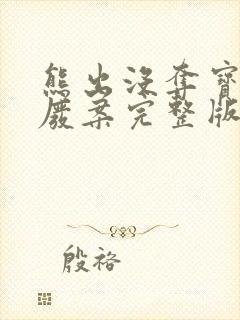 熊出没夺宝
废弃完整版
殷裕